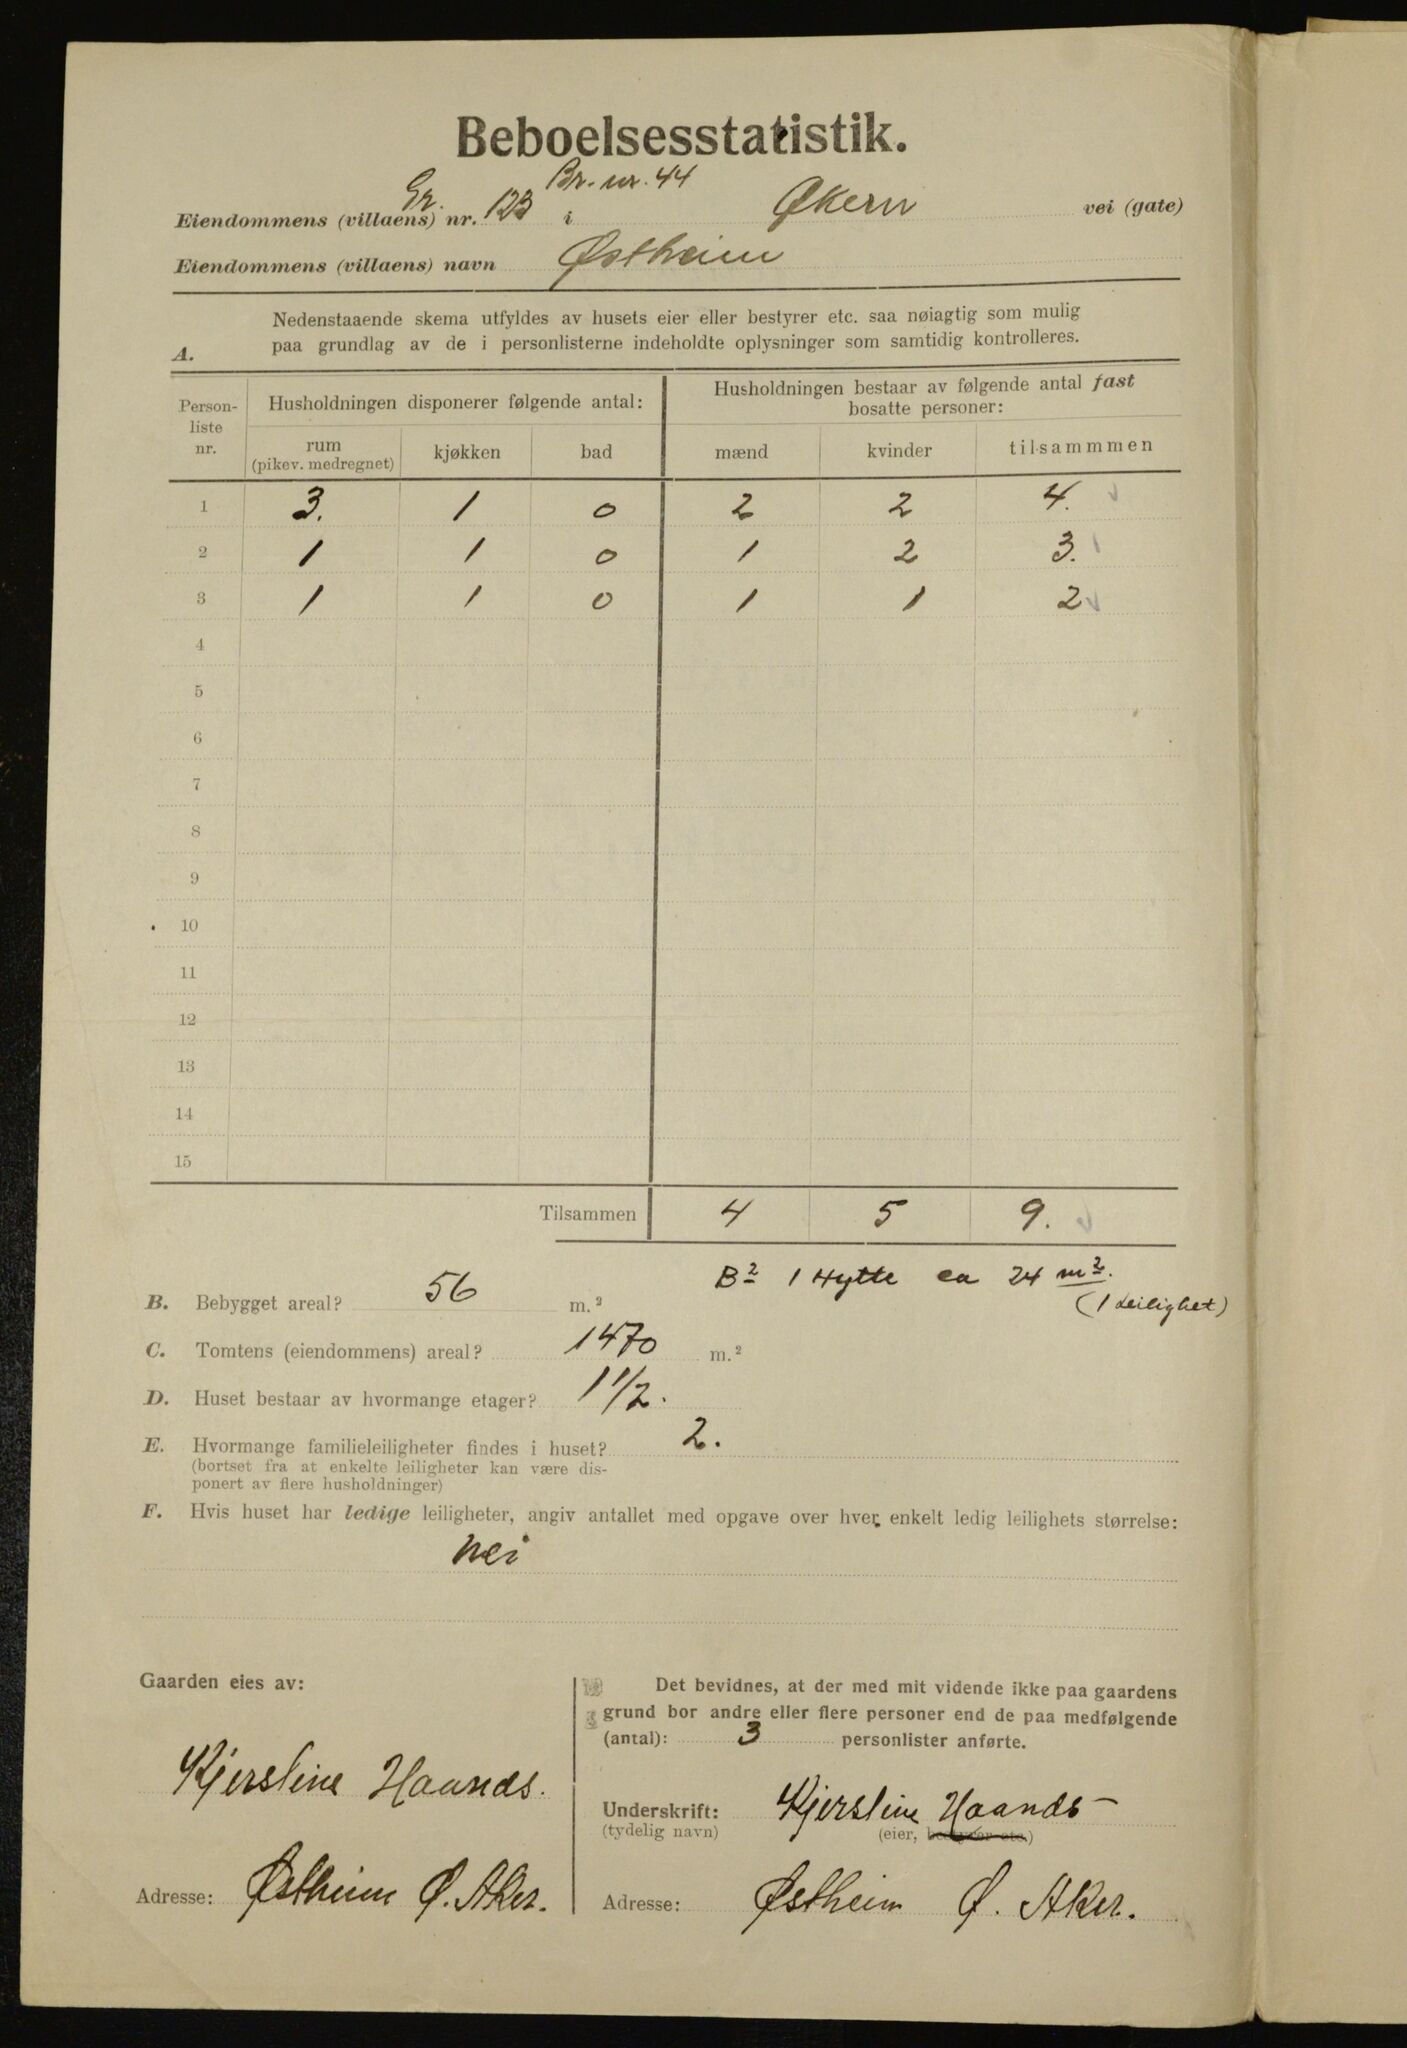 Beboelsesstatistik.
Gr. Br. nr. 44
Eiendommens (villaens) nr. 123 i Økern vei (gate)
Eiendommens (villaens) navn Østheim
A. Nedenstaaende skema utfyldes av husets eier eller bestyrer etc. saa nøiagtig som mulig
paa grundlag av de i personlisterne indeholdte oplysninger som samtidig kontrolleres.
Person-
liste
nr.
Husholdningen disponerer følgende antal:
Husholdningen bestaar av følgende antal fast
bosatte personer:
rum
(pikev. medregnet)
kjøkken bad mænd kvinder tilsammmen
1 3. 1 0 2 2 4.
2 1 1 0 1 2 3.
3 1 1 0 1 1 2
4
5
6
7
8
9
10
11
12
13
14
15
Tilsammen 4 5 9.
B2 1 Hytte ca 24 m2.
(1 Leilighet)
B. Bebygget areal? 56 m.2
C. Tomtens (eiendommens) areal? 1470 m.2
D. Huset bestaar av hvormange etager? 1 1/2.
E. Hvormange familieleiligheter findes i huset? 2.
(bortset fra at enkelte leiligheter kan være dis-
ponert av flere husholdninger)
F. Hvis huset har ledige leiligheter, angiv antallet med opgave over hver enkelt ledig leilighets størrelse:
Nei
Gaarden eies av:
Kjerstine Haands.
Adresse: Østheim Ø. Aker.
Det bevidnes, at der med mit vidende ikke paa gaardens
grund bor andre eller flere personer end de paa medfølgende
(antal): 3 personlister anførte.
Underskrift: Kjerstine Haands
(tydelig navn) (eier, bestyrer etc.)
Adresse: Østheim Ø. Aker.